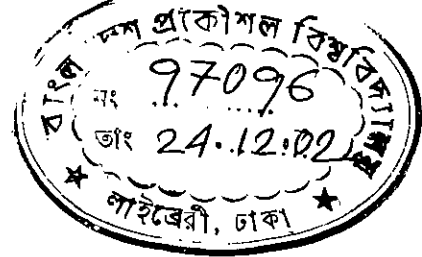 বাংলাদেশ প্রকৌশল বিশ্ববিদ্যালয়
নং 97096
তাং 24.12.02
★ লাইব্রেরী, ঢাকা ★